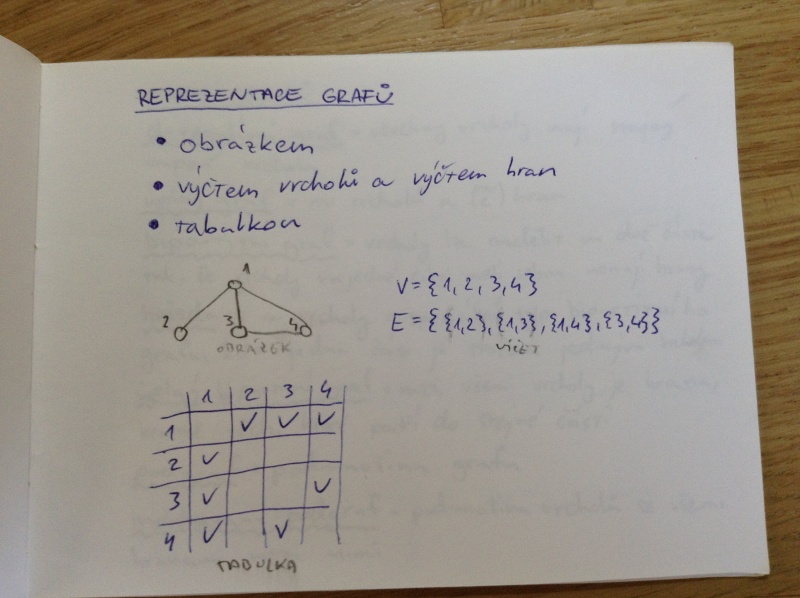 REPREZENTACE GRAFŮ
• obrázkem
• výčtem vrcholů a výčtem hran
• tabulkou
1
2 3 4
OBRÁZEK
V = {1, 2, 3, 4}
E = {{1,2}, {1,3}, {1,4}, {3,4}}
VÝČET
1 2 3 4
1 ✓ ✓ ✓
2 ✓
3 ✓ ✓
4 ✓ ✓
TABULKA